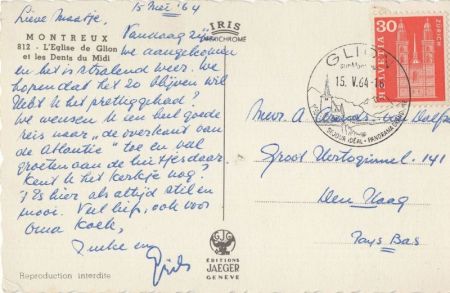 15 Mei '64
Lieve Maatje,
MONTREUX
812 - L'Eglise de Glion
et les Dents du Midi
IRIS
Vandaag zijn
we aangekomen
en het is stralend weer. We
hopen dat het zo blijven wil
Hebt U het prettig gehad?
We wensen U een heel goede
reis naar "de overkant van
de Atlantic" toe en veel
groeten aan de
Kent U het kerkje nog?
't Is hier als altijd stil en
mooi. Veel liefs, ook voor
Oma
Reproduction interdite
EDITIONS
JAEGER
GENEVE
GLION
15. V. 64
SEJOUR IDEAL - PANORAMA
30
HELVETIA
ZÜRICH
Mevr. A
Groot Hertoginnel. 141
Den Haag
Pays Bas